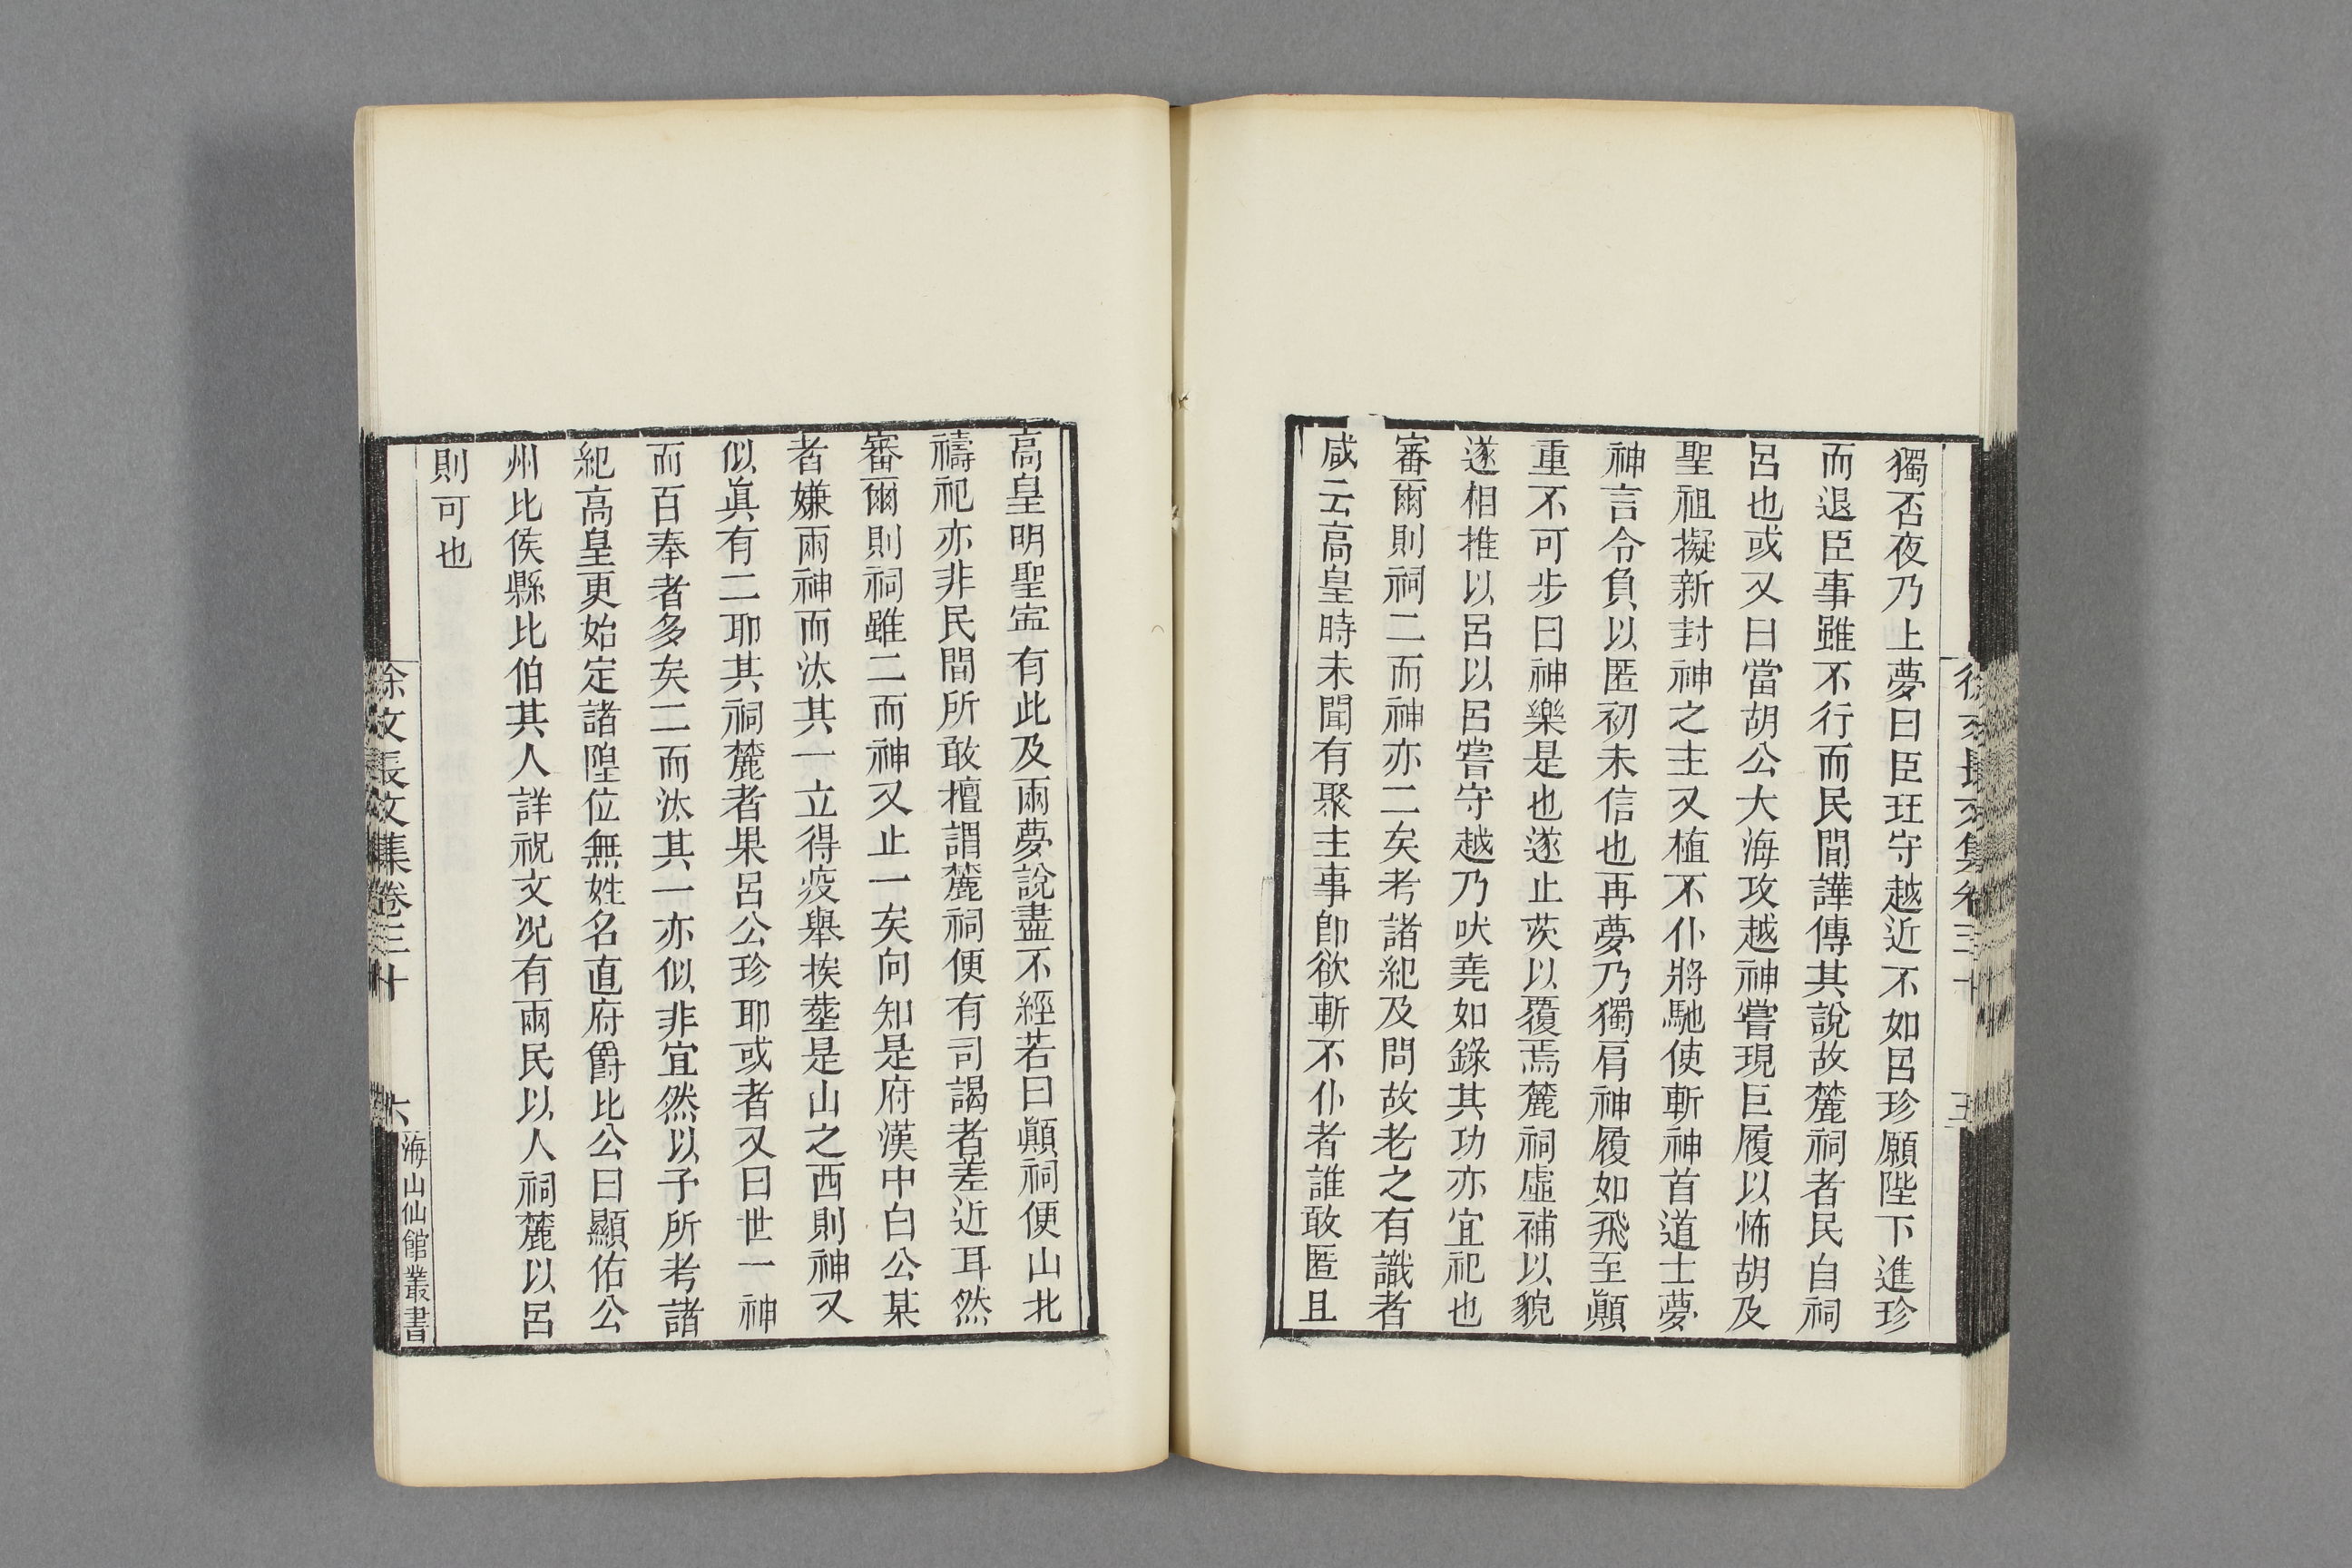 獨否夜乃上夢曰臣玨守越近不如呂珍願陛下進珍
而退臣事雖不行而民間譁傳其說故麓祠者民自祠
呂也或又曰當胡公大海攻越神嘗現巨履以怖胡及
聖祖擬新封神之主又植不仆將馳使斬神首道士夢
神言令負以匿初未信也再夢乃獨肩神履如飛至顚
重不可步曰神樂是也遂止茨以覆焉麓祠虛補以貌
遂相推以呂以呂嘗守越乃吠堯如錄其功亦宜祀也
審爾則祠二而神亦二矣考諸紀及問故老之有識者
咸云高皇時未聞有聚主事卽欲斬不仆者誰敢匿且
徐文長文集卷三十
五
高皇明聖寍有此及兩夢說盡不經若曰顚祠便山北
禱祀亦非民間所敢擅謂麓祠便有司謁者差近耳然
審爾則祠雖二而神又止一矣向知是府漢中白公某
者嫌兩神而汰其一立得疫舉挨塟是山之西則神又
似眞有二耶其祠麓者果呂公珍耶或者又曰世一神
而百奉者多矣二而汰其一亦似非宜然以予所考諸
紀高皇更始定諸隍位無姓名直府爵比公曰顯佑公
州比侯縣比伯其人詳祝文况有兩民以人祠麓以呂
則可也
徐文長文集卷三十
六
海山仙館叢書